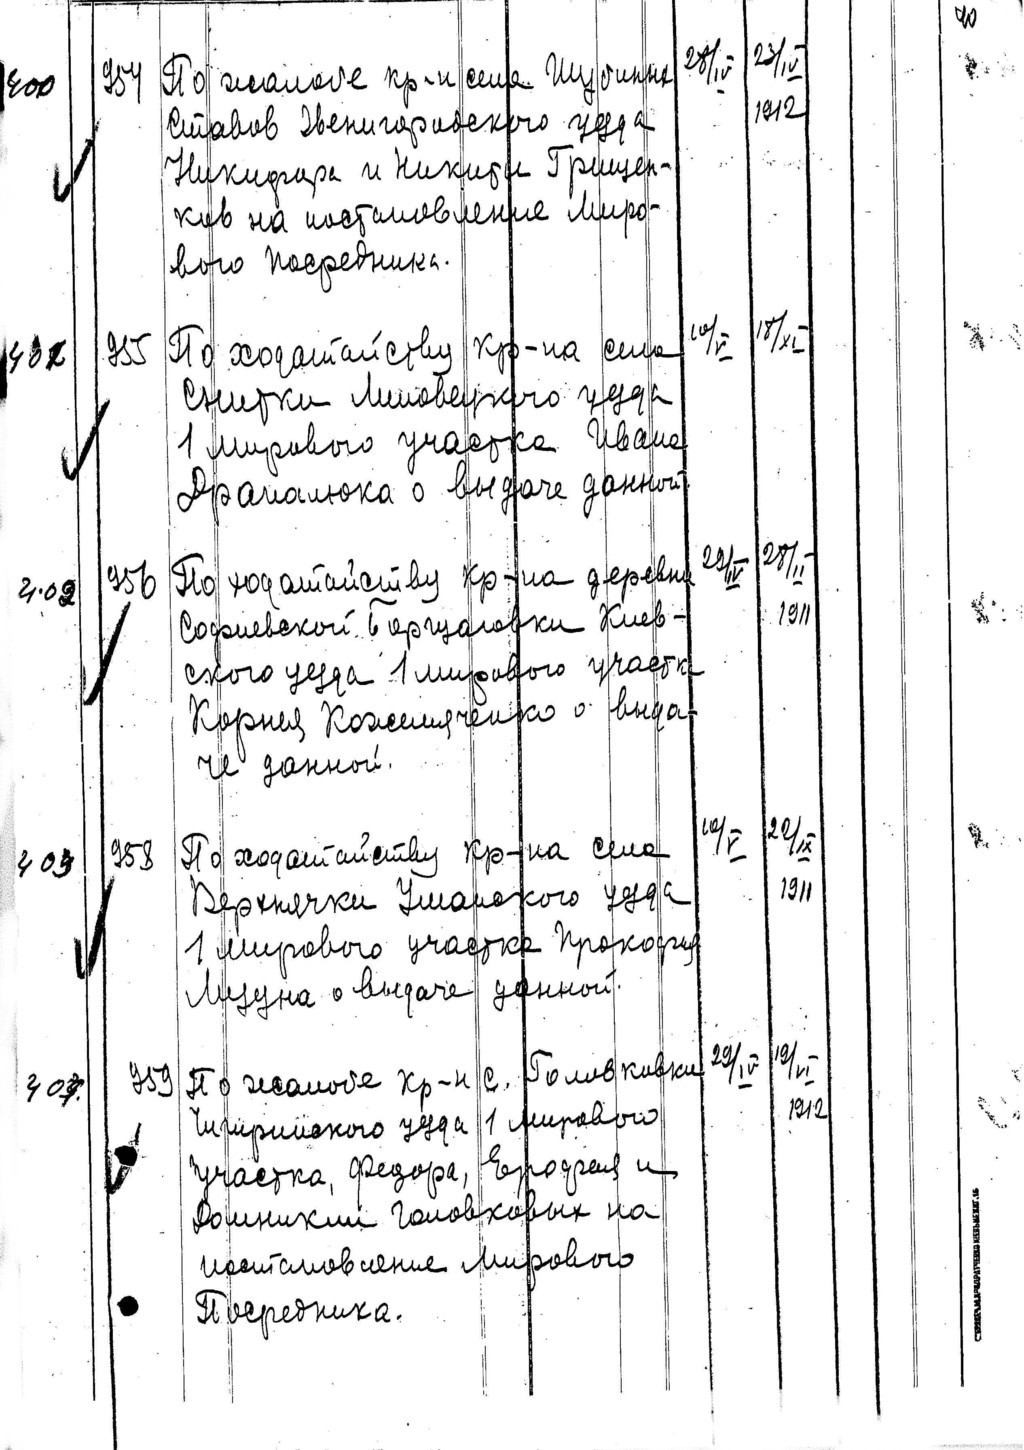 90
400 954 По жалобе кр-н села Шубинных 28/IV 23/IV
Ставов Звенигородского уезда 1912
Никифора и Никиты Грищен-
ков на постановление Миро-
вого Посредника.
955 По ходатайству кр-на села 10/V 18/XI
Снитки Липовецкого уезда
1 мирового участка Ивана
Драпалюка о выдаче данной
402 956 По ходатайству кр-на деревни 29/IV 28/II
Софиевской Борщаговки Киев- 1911
ского уезда 1 мирового участка
Корнея Кожемяченко о выда-
че данной.
403 958 По ходатайству кр-на села 10/V 22/IX
Верхнячки Уманского уезда 1911
1 мирового участка Прокофия
о выдаче данной.
404. 959 По жалобе кр-н с. Головковки 29/IV 19/VI
Чигиринского уезда 1 мирового 1912
участка, Федора, Ерофея и
Домникии Головковых на
постановление Мирового
Посредника.